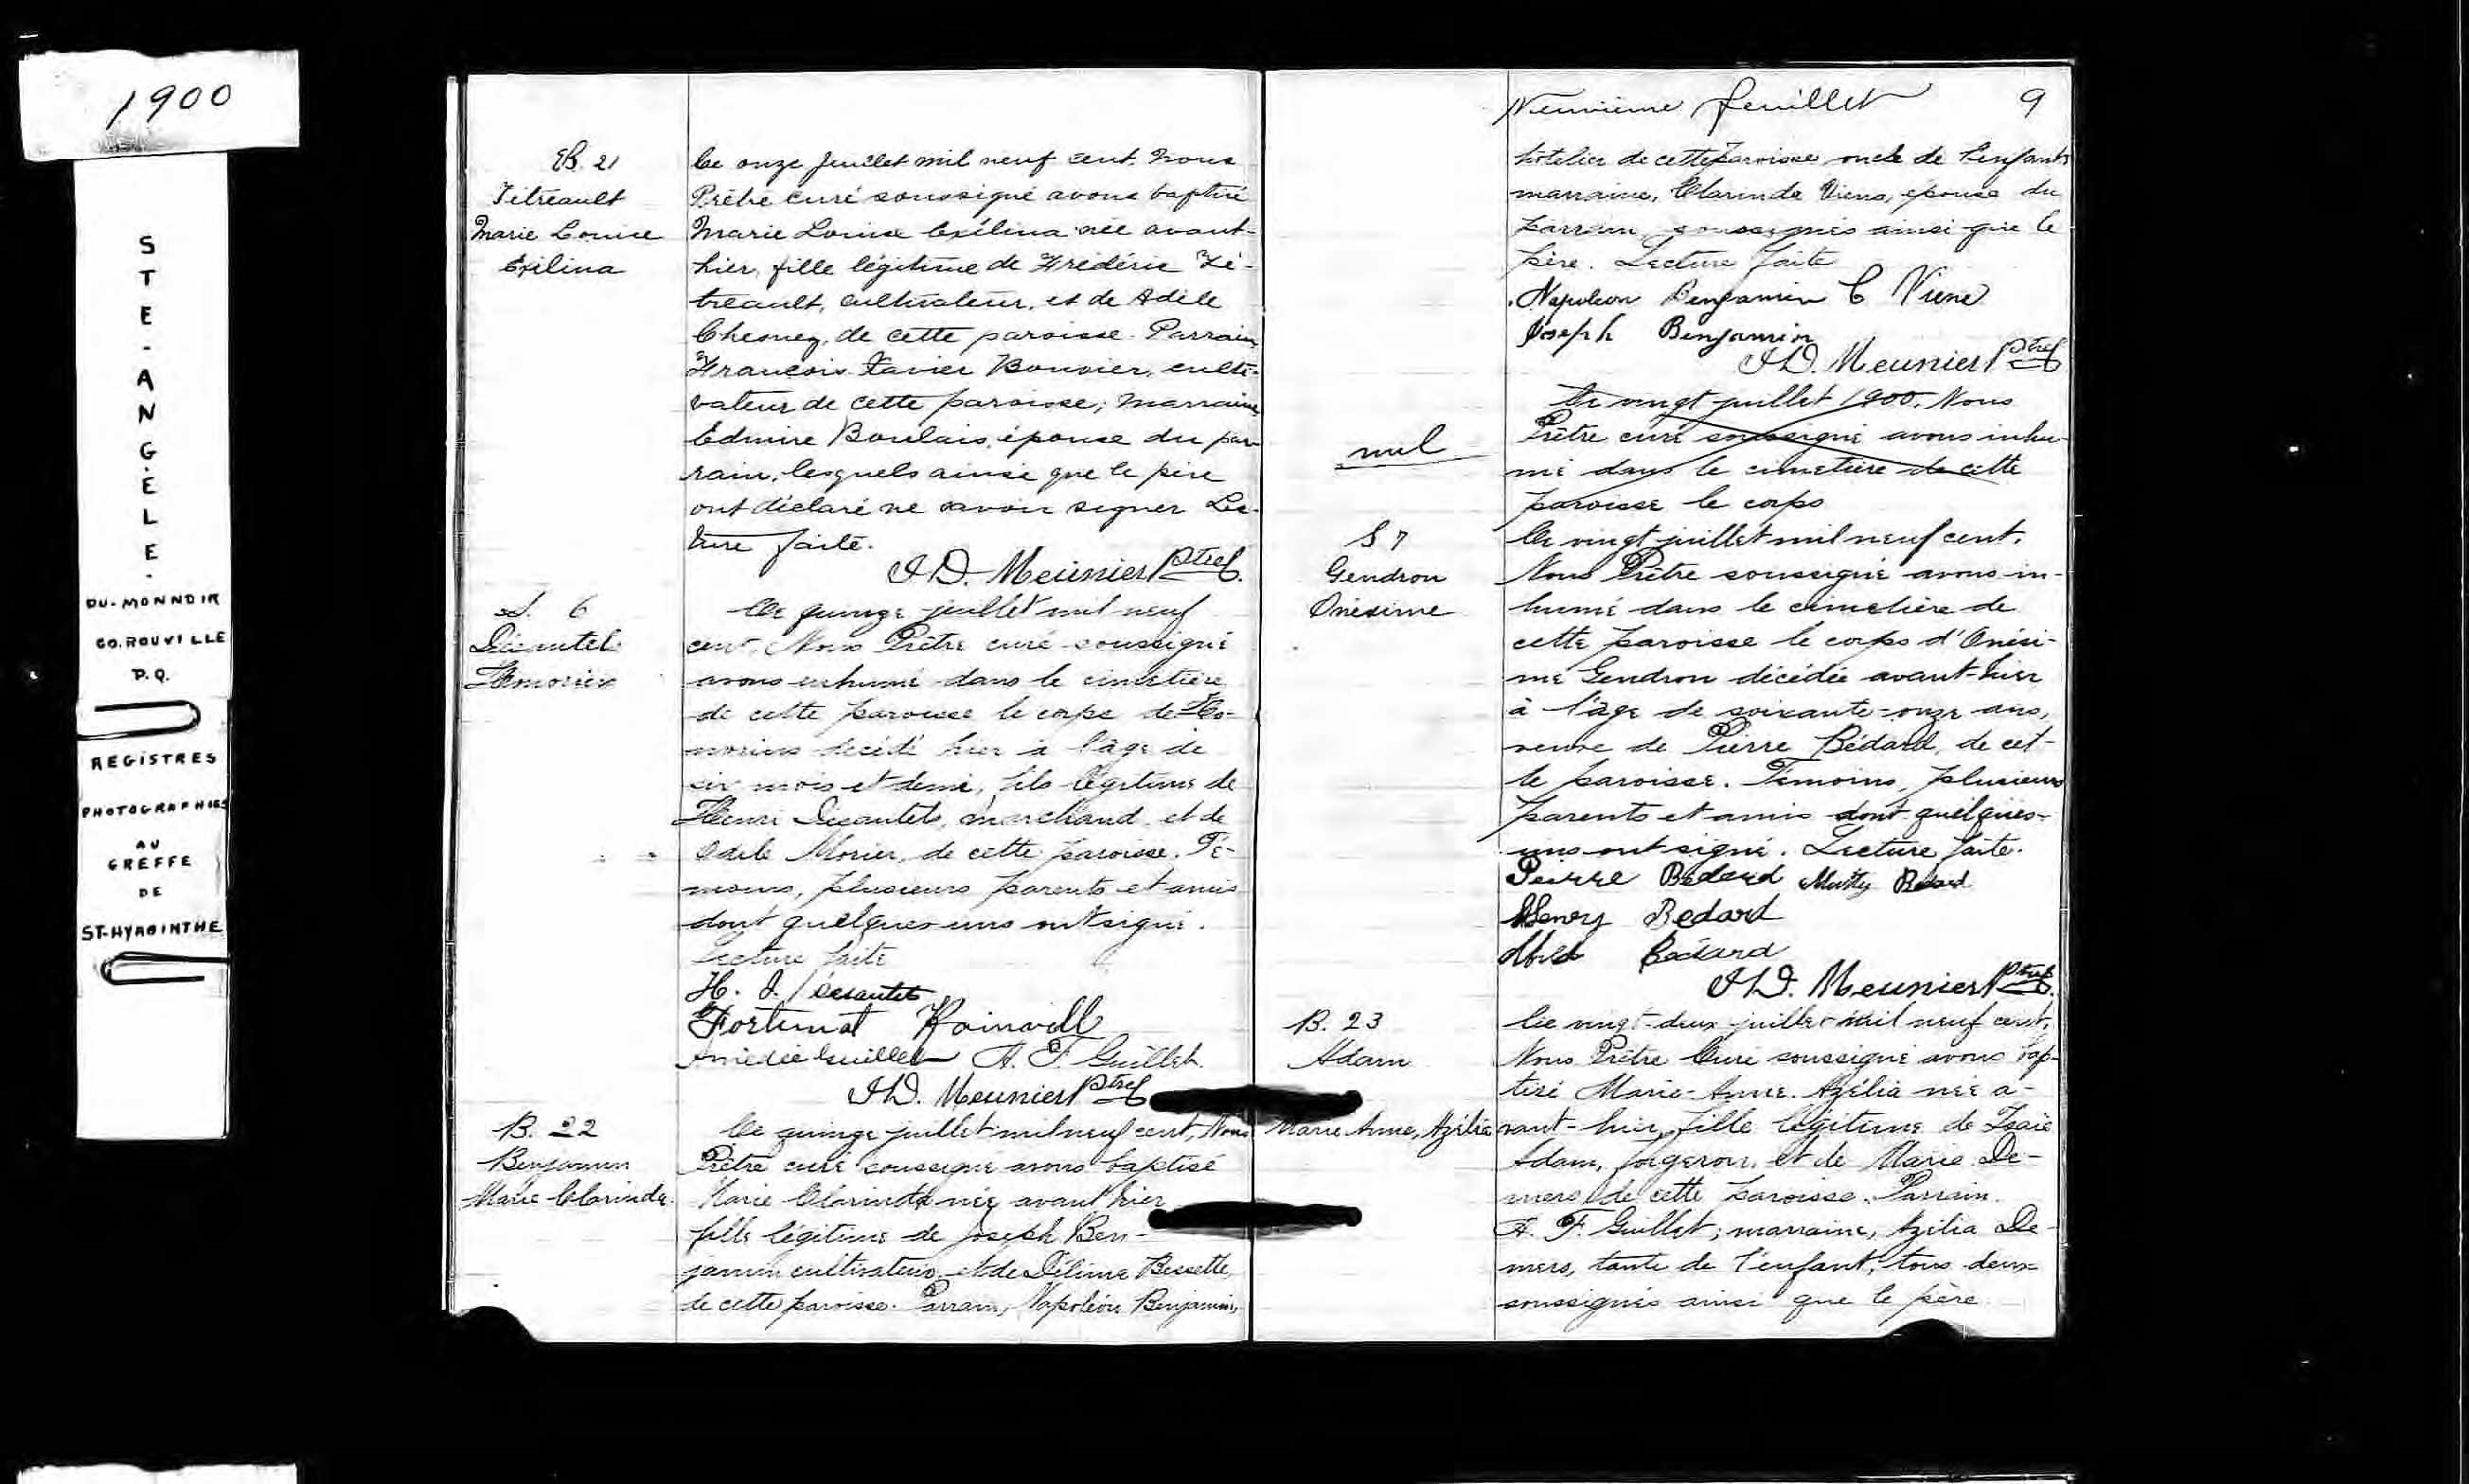 1900
STE-ANGÈLE-
DU-MONNOIR
CO. ROUVILLE
P.Q.
REGISTRES
PHOTOGRAPHIÉS
AU
GREFFE
DE
ST-HYACINTHE
B. 21
Tétreault
Marie Louise
Exilina
Ce onze juillet mil neuf cent. Nous
Prêtre curé soussigné avons baptisé
Marie Louise Exélina née avant-
hier, fille légitime de Frédéric Té-
treault, cultivateur, et de Adèle
Chesney, de cette paroisse. Parrain
François Xavier Bouvier, culti-
vateur de cette paroisse; marraine
Edmire Boulais, épouse du par-
rain, lesquels ainsi que le père
ont déclaré ne savoir signer Lec-
ture faite.
J D. Meunier Ptre
S. 6
Décautels
Ce quinze juillet mil neuf
cent, Nous Prêtre curé soussigné
avons inhumé dans le cimetière
de cette paroisse le corps de Ho-
norius décédé hier à l'âge de
six mois et demi, fils légitime de
Henri Décautels, marchand et de
Odile Morier, de cette paroisse. Té-
moins, plusieurs parents et amis
dont quelques uns ont signé.
Lecture faite
H. J. Décautels
Fortunat
Amédée Guillet A. F. Guillet
J D. Meunier Ptre
B. 22
Benjamin
Marie Clarinda
Ce quinze juillet mil neuf cent, Nous
Prêtre curé soussigné avons baptisé
Marie Clarinda née avant hier
fille légitime de Joseph Ben-
jamin cultivateur, et de Délima Bessette,
de cette paroisse. Parrain, Napoléon Benjamin,
Neuvième feuillet 9
hôtelier de cette paroisse oncle de l'enfant
marraine, Clarinda Viens, épouse du
parrain, soussignés ainsi que le
père. Lecture faite
Napoleon Benjamin C Viens
Joseph Benjamin
J D. Meunier Ptre
nul
Ce vingt juillet 1900. Nous
Prêtre curé soussigné avons inhu-
mé dans le cimetière de cette
paroisse le corps
S 7
Gendron
Onésime
Ce vingt juillet mil neuf cent.
Nous Prêtre soussigné avons in-
humé dans le cimetière de
cette paroisse le corps d'Onési-
me Gendron décédée avant-hier
à l'âge de soixante-onze ans,
veuve de Pierre Bédard, de cet-
te paroisse. Témoins, plusieurs
parents et amis dont quelques-
uns ont signé. Lecture faite.
Peirre Bedard Bedard
Henry Bedard
Bedard
J D. Meunier Ptre
B. 23
Adam
Marie Anne, Azélia
Ce vingt-deux juillet mil neuf cent,
Nous Prêtre Curé soussigné avons bap-
tisé Marie-Anne. Azélia née a-
vant-hier, fille légitime de Isaie
Adam, forgeron, et de Marie De-
mers de cette paroisse. Parrain.
A. F. Guillet; marraine, Azilia De-
mers, tante de l'enfant, tous deux
soussignés ainsi que le père